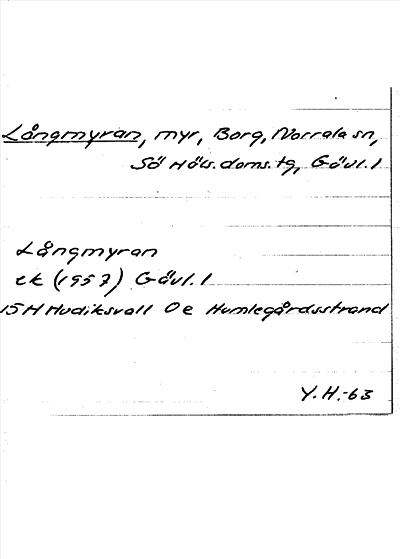 Långmyran, myr, Borg, Norrala sn,
Sö Häls. doms. tg, Gävl. l
Långmyran
ek (1957) Gävl. l
15H Hudiksvall 0e Humlegårdsstrand
Y.H.-63